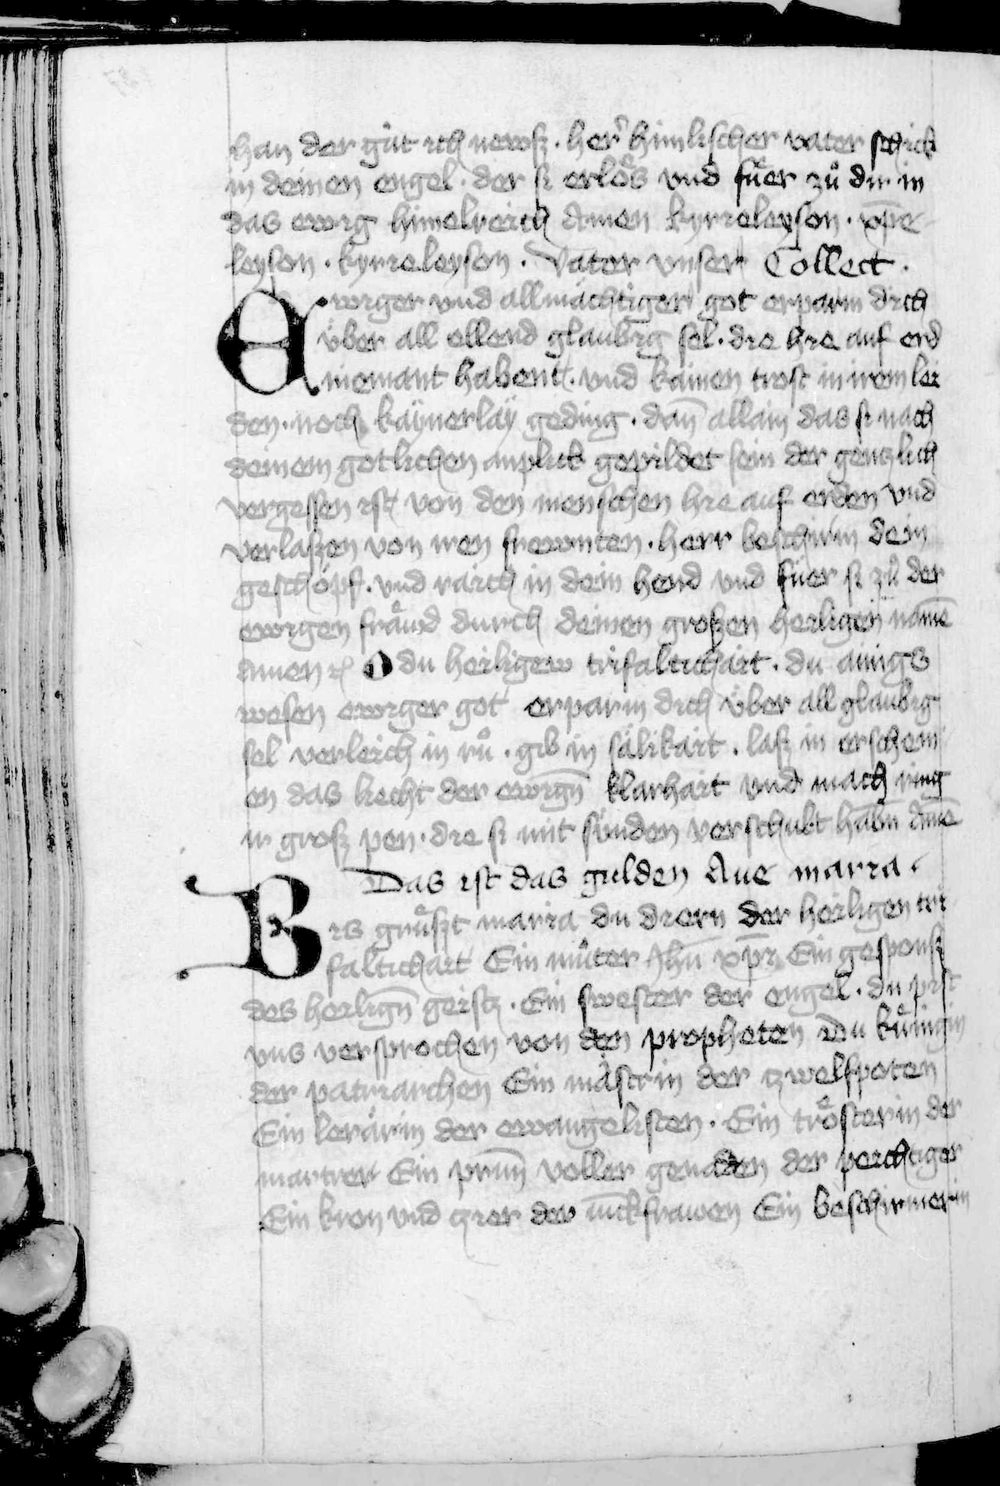 han der gůt ich newsz · her̃ himlischer vater schick
in deinen engel · der si erlöͤs vnd fuͤer zuͦ dir in
das ewig himelreich Amen kyrieleyson · xp̄e
leyson · kyrieleyson · Vater vnser Collect ·
Ewiger vnd allmächtiger got erparm dich
über all ellend glaubig sel · die hie auf erd
niemant habent · vnd kainen trost in irem lei
den · noch kaynerlay geding · dan̄ allain das si nach
deinem gotlichen anplick gepildet sein der gentzlich
vergessen ist von den menschen hie auf erden vnd
verlaszen von iren frewnten · herr beschirm dein
geschöpf · vnd raich in dein hend vnd füer si zů der
ewigen fräud durch deinen groszen heiligen namē
amen O du heiligew trifaltichait · du ainigs
wesen ewiger got erparm dich über all glaubig
sel verleich in ruͦ · gib in sälikait · lasz in erschein
en das liecht der ewign̄ klarhait vnd mach ring
ir grosz pen · die si mit sünden verschult habn̄ Amē
Das ist das gulden Aue maria ·
Bis gruͤszt maria du diern der heiligen tri
faltichait Ein můter Jhū xp̄i Ein gesponsz
des heilign̄ geistz · Ein swester der engel · du pist
vns versprochen von den propheten Du küngin
der patriarchen Ein mästrin der zwelfpoten
Ein lerärin der ewangelisten · Ein tröͤsterin der
martrer Ein prun̄ voller genaden der peichtiger
Ein kron vnd zier der iūckfrawen Ein beschirmerin